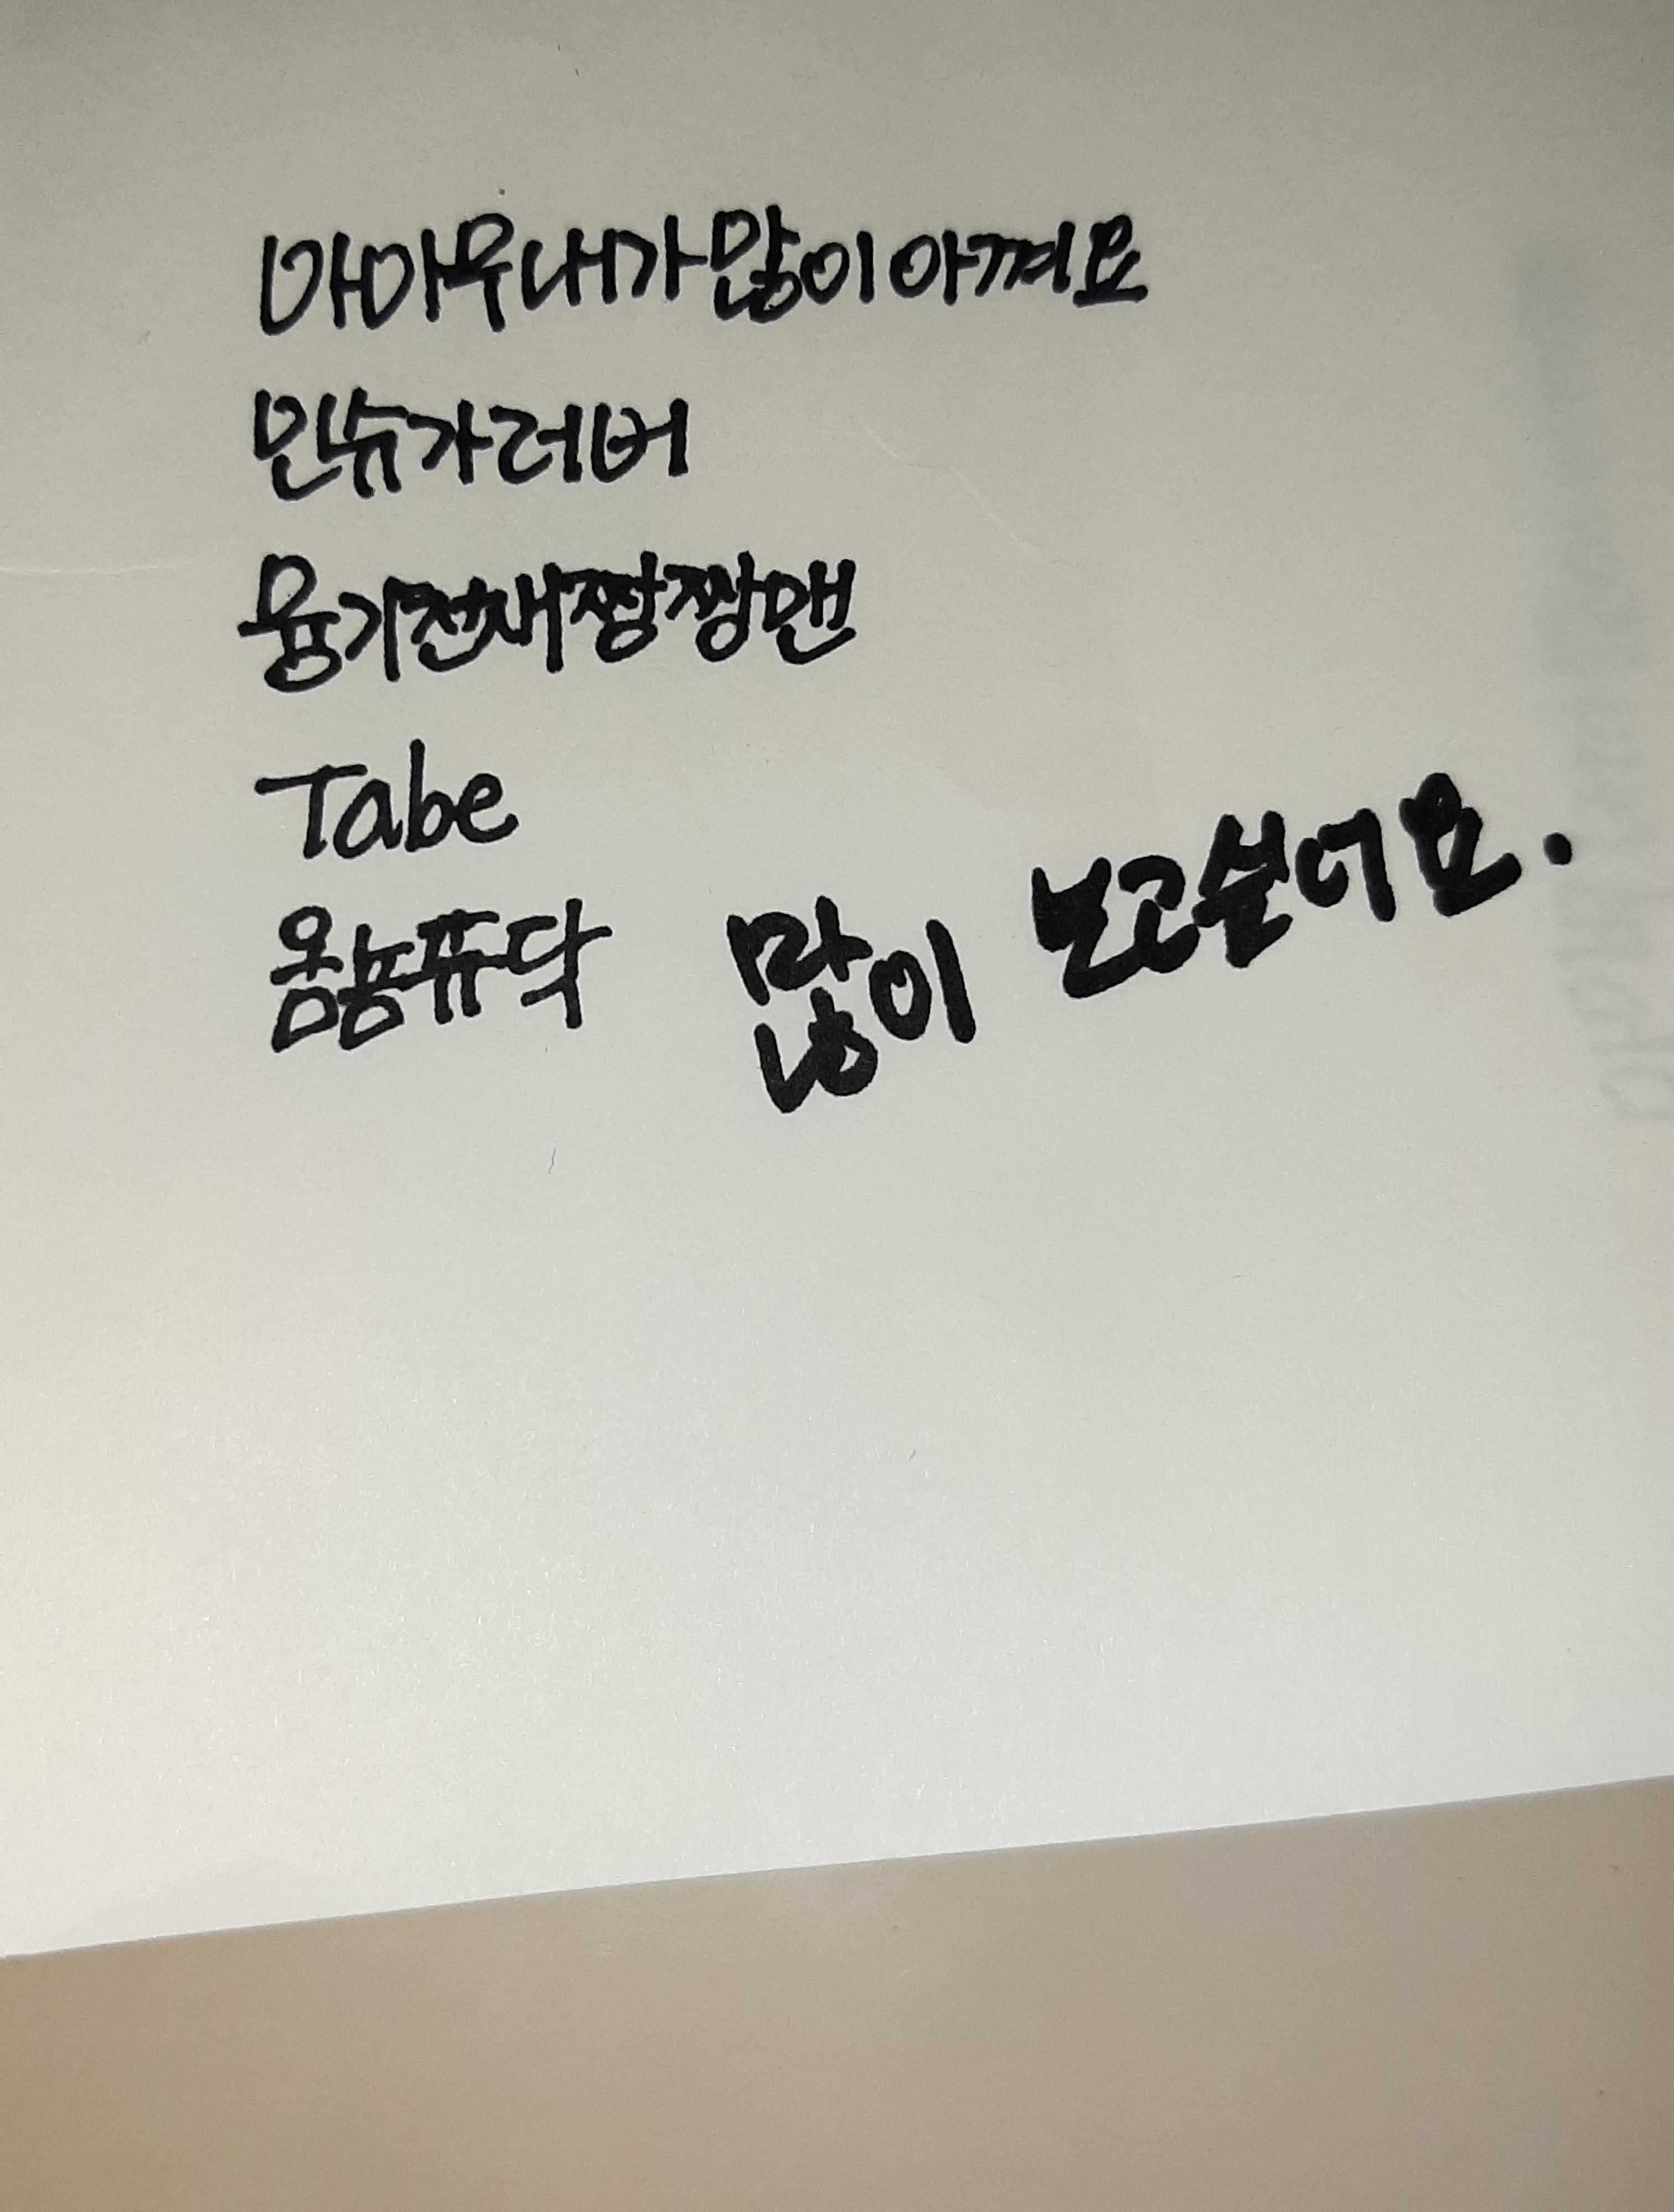 마마무내가많이아껴요
민슈가러버
융기천재짱짱맨
Tabe
옴뇸퓨닥
많이 보고싶어요.